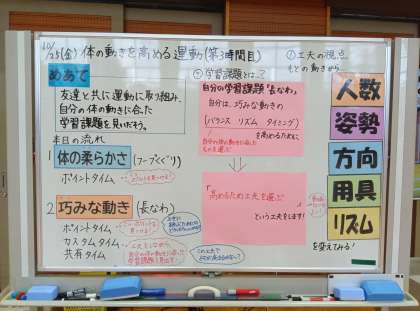 10/25(金) 体の動きを高める運動(第3時間目)
めあて
友達と共に運動に取り組み、
自分の体の動きに合った
学習課題を見いだそう。
本日の流れ
1 体の柔らかさ(フープくぐり)
ポイントタイム
2 巧みな動き(長なわ)
ポイントタイム
カスタムタイム
共有タイム
工夫しながら、
自分の体の動きに合った
学習課題を見出す
学習課題とは…?
自分の学習課題「長なわ」
自分は、巧みな動きの
(バランス リズム タイミング)
を高めるために
自分の体の動きに合った
「高めるため工夫を選ぶ
という工夫をします!
①工夫の視点
もとの動きから
人数
姿勢
方向
用具
リズム
を変えてみる!